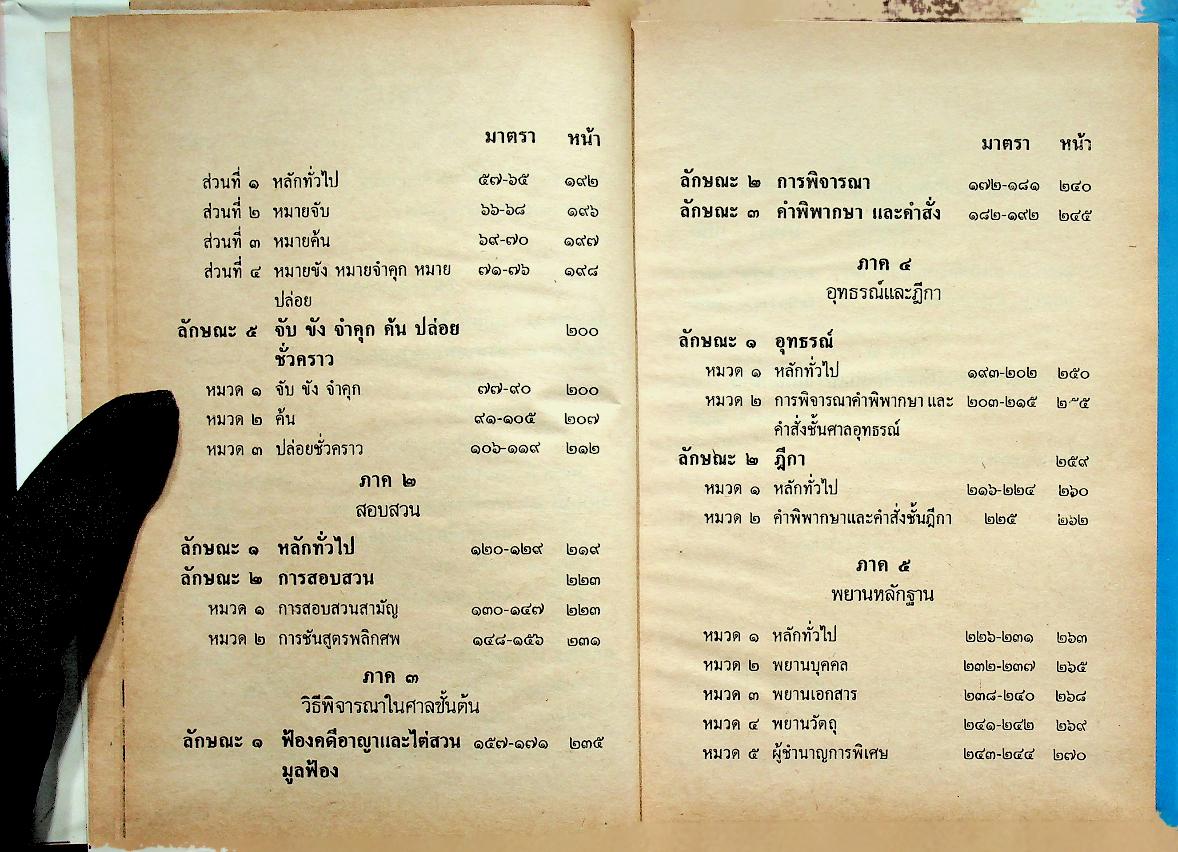 มาตรา หน้า
ส่วนที่ ๑ หลักทั่วไป ๕๗-๖๕ ๑๙๒
ส่วนที่ ๒ หมายจับ ๖๖-๖๘ ๑๙๖
ส่วนที่ ๓ หมายค้น ๖๙-๗๐ ๑๙๗
ส่วนที่ ๔ หมายขัง หมายจำคุก หมาย ๗๑-๗๖ ๑๙๘
ปล่อย
ลักษณะ ๕ จับ ขัง จำคุก ค้น ปล่อย ๒๐๐
ชั่วคราว
หมวด ๑ จับ ขัง จำคุก ๗๗-๙๐ ๒๐๐
หมวด ๒ ค้น ๙๑-๑๐๕ ๒๐๗
หมวด ๓ ปล่อยชั่วคราว ๑๐๖-๑๑๙ ๒๑๒
ภาค ๒
สอบสวน
ลักษณะ ๑ หลักทั่วไป ๑๒๐-๑๒๙ ๒๑๙
ลักษณะ ๒ การสอบสวน ๒๒๓
หมวด ๑ การสอบสวนสามัญ ๑๓๐-๑๔๗ ๒๒๓
หมวด ๒ การชันสูตรพลิกศพ ๑๔๘-๑๕๖ ๒๓๑
ภาค ๓
วิธีพิจารณาในศาลชั้นต้น
ลักษณะ ๑ ฟ้องคดีอาญาและไต่สวน ๑๕๗-๑๗๑ ๒๓๕
มูลฟ้อง
มาตรา หน้า
ลักษณะ ๒ การพิจารณา ๑๗๒-๑๘๑ ๒๔๐
ลักษณะ ๓ คำพิพากษา และคำสั่ง ๑๘๒-๑๙๒ ๒๔๕
ภาค ๔
อุทธรณ์และฎีกา
ลักษณะ ๑ อุทธรณ์
หมวด ๑ หลักทั่วไป ๑๙๓-๒๐๒ ๒๕๐
หมวด ๒ การพิจารณาคำพิพากษา และ ๒๐๓-๒๑๕
คำสั่งชั้นศาลอุทธรณ์
ลักษณะ ๒ ฎีกา ๒๕๙
หมวด ๑ หลักทั่วไป ๒๑๖-๒๒๔ ๒๖๐
หมวด ๒ คำพิพากษาและคำสั่งชั้นฎีกา ๒๒๕ ๒๖๒
ภาค ๕
พยานหลักฐาน
หมวด ๑ หลักทั่วไป ๒๒๖-๒๓๑ ๒๖๓
หมวด ๒ พยานบุคคล ๒๓๒-๒๓๗ ๒๖๕
หมวด ๓ พยานเอกสาร ๒๓๘-๒๔๐ ๒๖๘
หมวด ๔ พยานวัตถุ ๒๔๑-๒๔๒ ๒๖๙
หมวด ๕ ผู้ชำนาญการพิเศษ ๒๔๓-๒๔๔ ๒๗๐